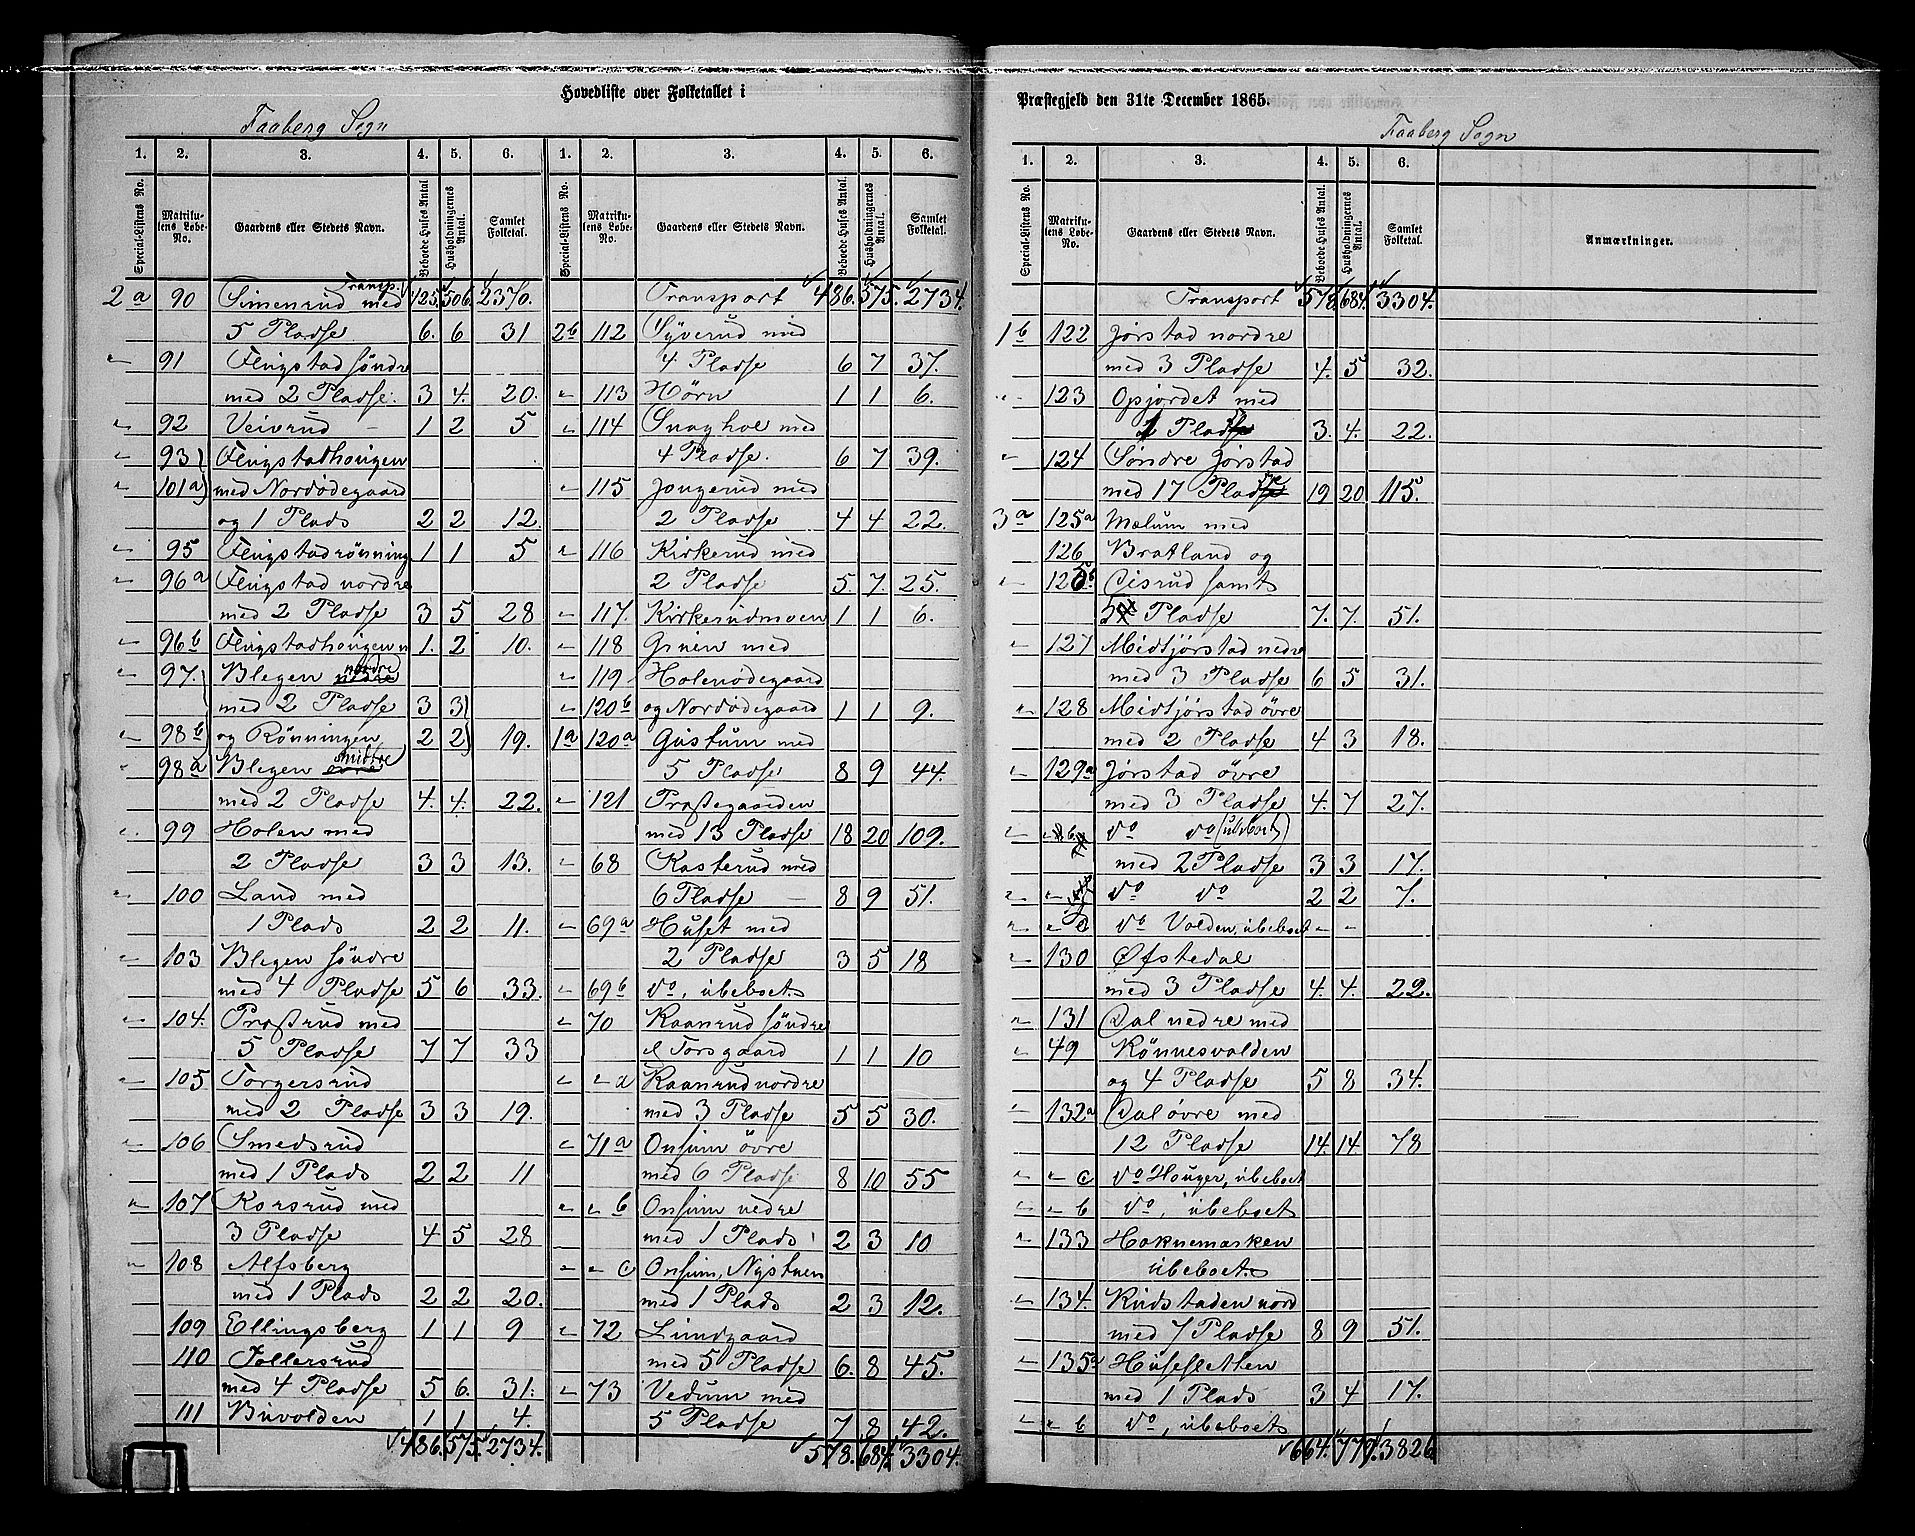 Hovedliste over Folketallet i
Faaberg Sogn
1. 2. 3. 4. 5. 6. 1. 2. 3. 4. 5. 6.
Special-Listens No. Matrikulens Løbe-No. Gaardens eller Stedets Navn. Beboede Huses Antal Husholdningernes Antal. Samlet Folketal. Special-Listens No. Matrikulens Løbe-No. Gaardens eller Stedets Navn. Beboede Huses Antal. Husholdningernes Antal. Samlet Folketal.
Transp.
2a 90 Simenrud med 425. 506. 2370.
5 Pladse 6. 6 31
" 91 Flugstad søndre
med 2 Pladse. 3 4. 20.
" 92 Veivrud 1 2 5
" 93 Flugstadhougen
" 101a med Nordødegaard
og 1 Plads 2 2 12.
" 95 Flugstadrønning 1 1 5
" 96a Flugstad nordre
med 2 Pladse 3 5 28
" 96b Flugstadhougen n 1. 2 10.
" 97. Blegen nedre nordre
med 2 Pladse 3 3
" 98b og Rønningen 2 2 19.
" 98a Blegen øvre midtre
med 2 Pladse 4. 4. 22.
" 99 Holen med
2 Pladse 3 3 13.
" 100 Land med
1 Plads 2 2 11.
" 103 Blegen søndre
med 4 Pladse 5 6 33.
" 104. Praßrud med
5 Pladse 7 7 33
" 105 Torgersrud
med 2 Pladse 3 3 19.
" 106 Smedsrud
med 1 Plads 2 2 11
" 107 Korsrud med
3 Pladse 4 5 28
" 108 Alfsberg
med 1 Plads 2 2 20.
109 Ellingsberg 1 1 9
110 Jollersrud
med 4 Pladse 5 6. 31.
111 Buvolden 1 1 4.
486. 575. 2734.
Transport 486. 575. 2734.
2b 112 Syverud med
4 Pladse 6 7 37.
" 113 Hørn 1 1 6.
" 114 Snaghol med
4 Pladse. 6 7 39.
" 115 Jongerud med
2 Pladse 4 4 22.
" 116 Kirkerud med
2 Pladse 5. 7. 25.
" 117. Kirkerudmoen 1 1 6.
" 118 Gruen med
" 119 Holenødegaard
" 120b og Nordødegaard 1 1 9.
1a 120a Gustum med
5 Pladse 8 9 44.
" 121 Praßegaarden
med 13 Pladse 18 20 109.
" 68 Kasterud med
6 Pladse 8 9 51.
" 69a Huset med
2 Pladse 3 5 18
" 69b do, ubeboet.
" 70 Kaanrud søndre
el Torsgaard 1 1 10
" " a Kaanrud nordre
med 3 Pladse 5 5 30.
" 71a Onsum øvre
med 6 Pladse 8 10 55
" " b Onsum nedre
med 1 Plads 2 3 10
" " c Onsum, Nystuen
med 1 Plads 2 3 12.
" 72 Lundgaard
med 5 Pladse 6. 8 45.
" 73 Vedum med
5 Pladse 7 8 42.
578. 684. 3304.
Præstegjeld den 31te December 1865.
Faaberg Sogn
1. 2. 3. 4. 5. 6.
Special-Listens No. Matrikulens Løbe-No. Gaardens eller Stedets Navn. Beboede Huses Antal. Husholdningernes Antal. Samlet Folketal. Anmærkninger.
Transport 578. 684. 3304.
1b 122 Jørstad nordre
med 3 Pladse 4. 5 32.
" 123 Opjordet med
1 Plads 3. 4. 22.
" 124 Søndre Jørstad
med 17 Pladse 19 20 115.
3a 125a Mælum med
126 Bratland og
" 125b Cisrud samt
5 Pladse 7. 7. 51.
" 127 Midtjørstad nedre
med 3 Pladse 6 5 31.
" 128 Midtjørstad øvre
med 2 Pladse 4 3 18.
" 129a Jørstad øvre
med 3 Pladse 4. 7 27.
" " b do do (ubeboet)
med 2 Pladse 3 3 17.
" " do do 2 2 7.
" " d do Volden, ubeboet - -
" 130 Øfstedal
med 3 Pladse 4. 4. 22.
" 131 Dal nedre med
" 49 Rønnesvolden
og 4 Pladse 5 8 34.
" 132a Dal øvre med
12 Pladse 14. 14. 78
" " c do Houger, ubeboet
" " b do, ubeboet
" 133 Haknemarken
ubeboet.
" 134. Rudstaden nord
med 7 Pladse 8 9 51.
" 135a Husesletten
med 1 Plads 3 4 17.
" " b do, ubeboet
664. 779. 3826